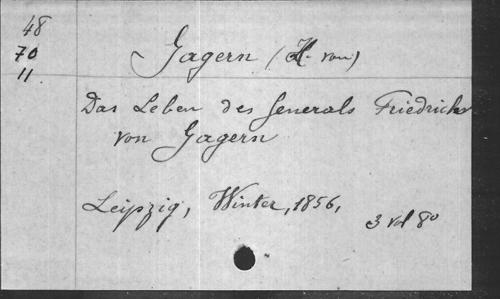 48
70
11
Gagern (H. von)
Das Leben des Generals Friedrich
von Gagern
Leipzig, Winter, 1856,
3 vol 8º